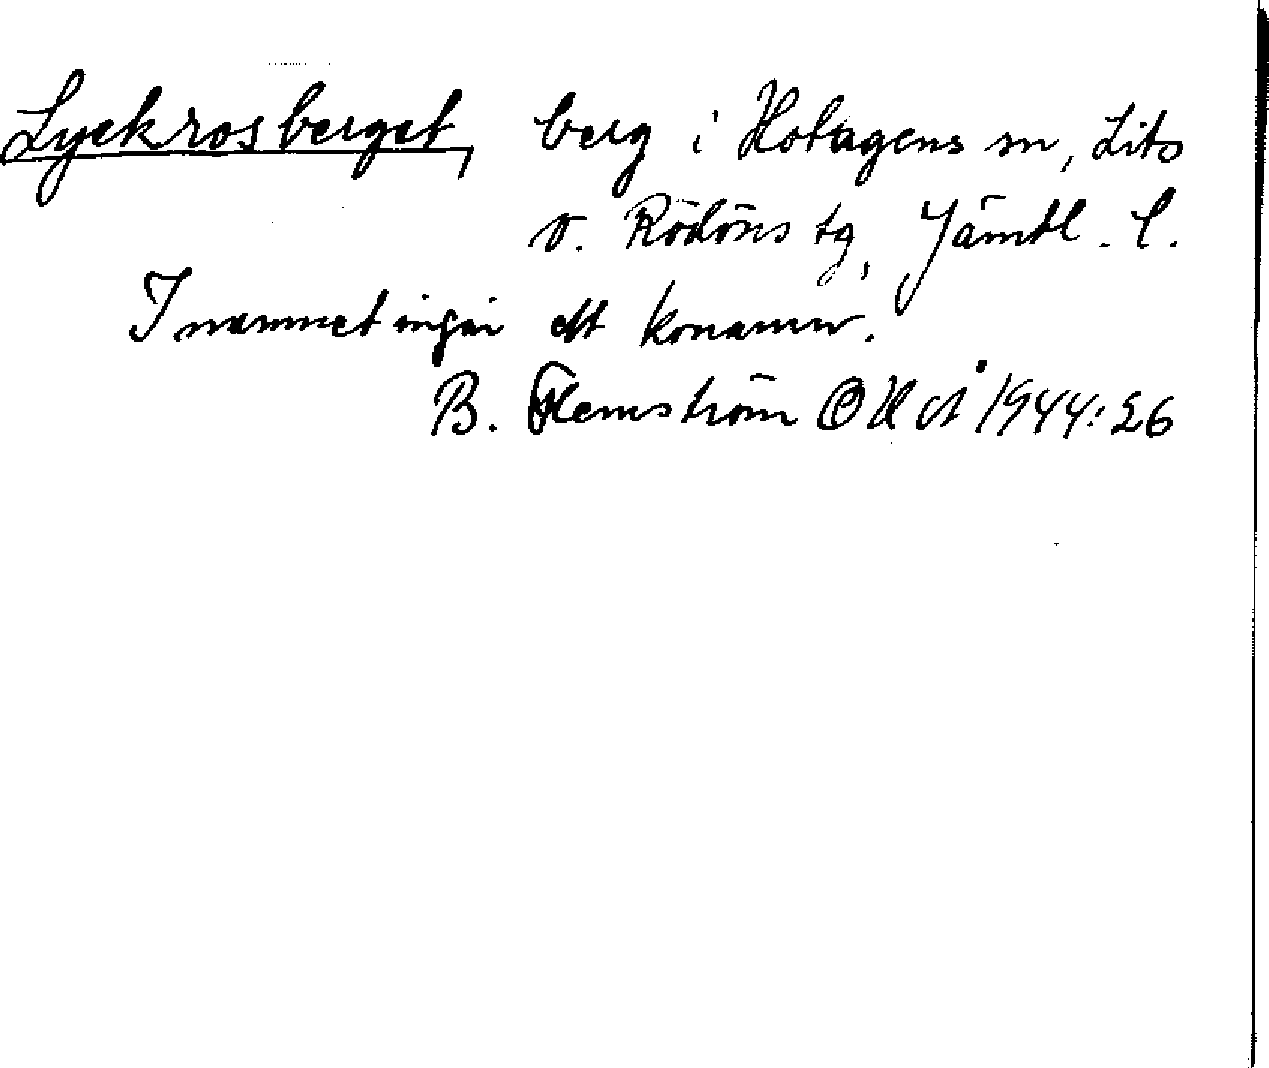 Lyckrosberget, berg i Hotagens sn, Lits
o. Rödöns tg, Jämtl. l.
I namnet ingår ett konamn.
B. Flemström OHÅ 1944: 26